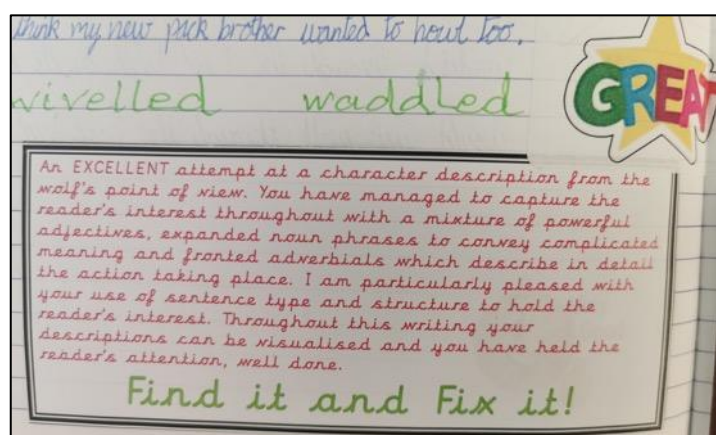 think my new pack brother wanted to howl too.
wivelled waddled
GREAT
An EXCELLENT attempt at a character description from the
wolf's point of view. You have managed to capture the
reader's interest throughout with a mixture of powerful
adjectives, expanded noun phrases to convey complicated
meaning and fronted adverbials which describe in detail
the action taking place. I am particularly pleased with
your use of sentence type and structure to hold the
reader's interest. Throughout this writing your
descriptions can be visualised and you have held the
reader's attention, well done.
Find it and Fix it!